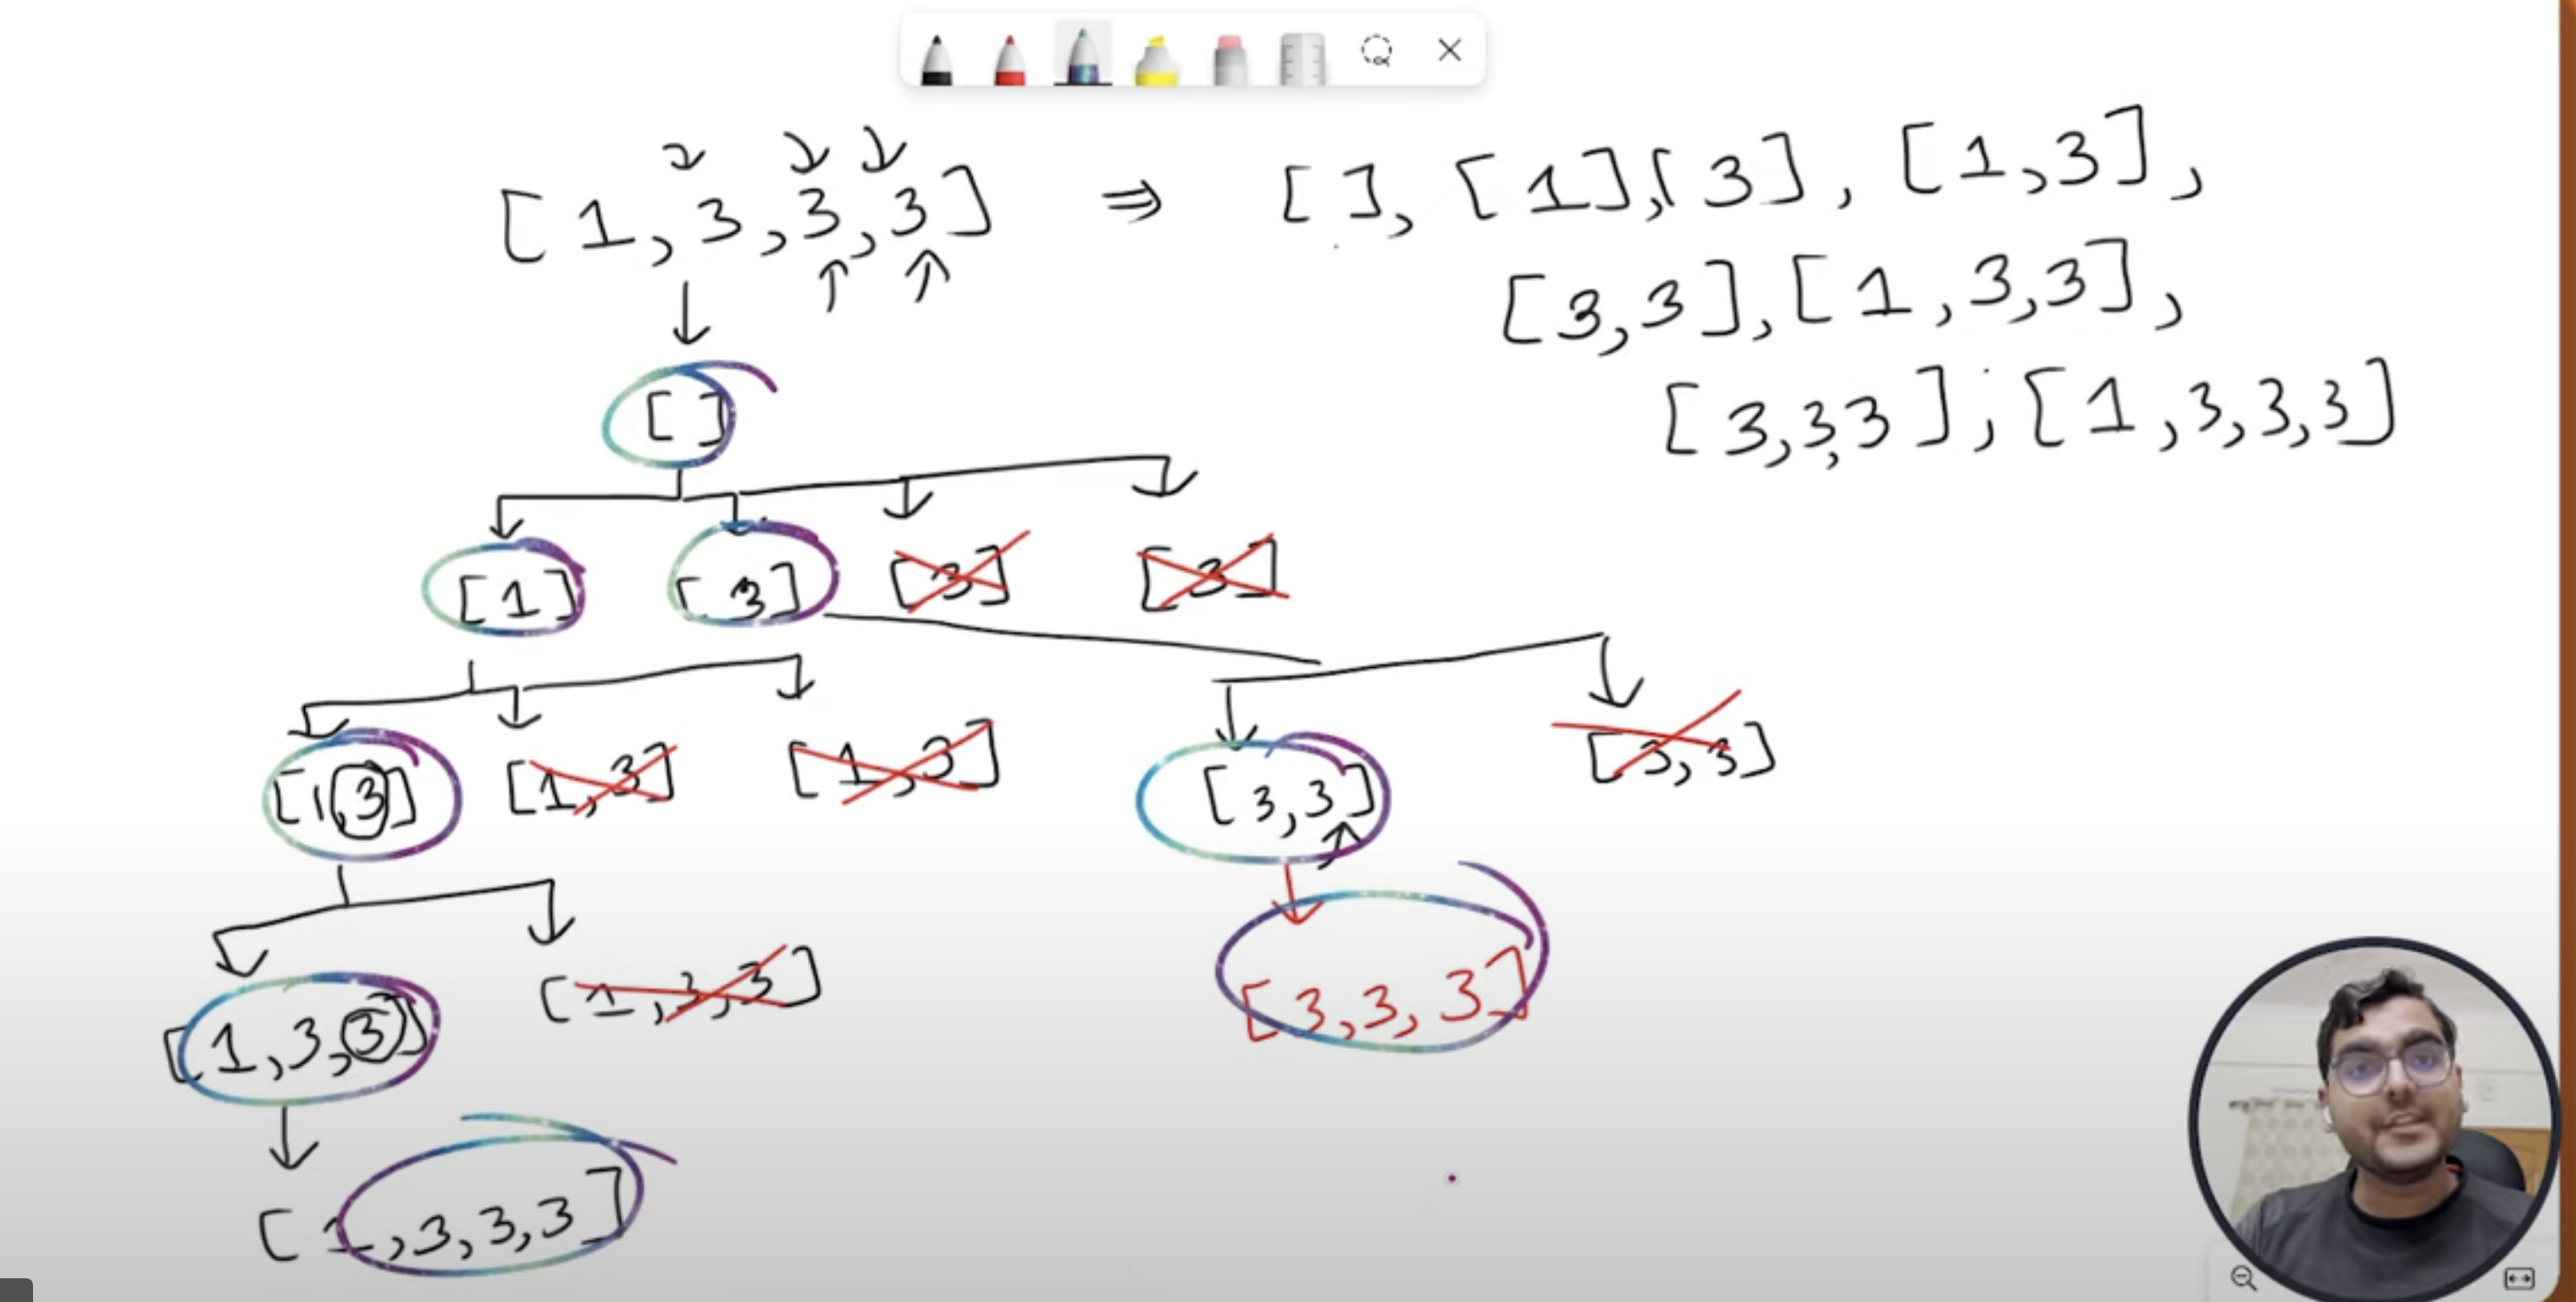 [1,3,3,3] ⇒ [ ], [1],[3], [1,3],
[3,3],[1,3,3],
[3,3,3],[1,3,3,3]
[ ]
[1] [3] [3] [3]
[1,3] [1,3] [1,3] [3,3] [3,3]
[1,3,3] [1,3,3] [3,3,3]
[1,3,3,3]